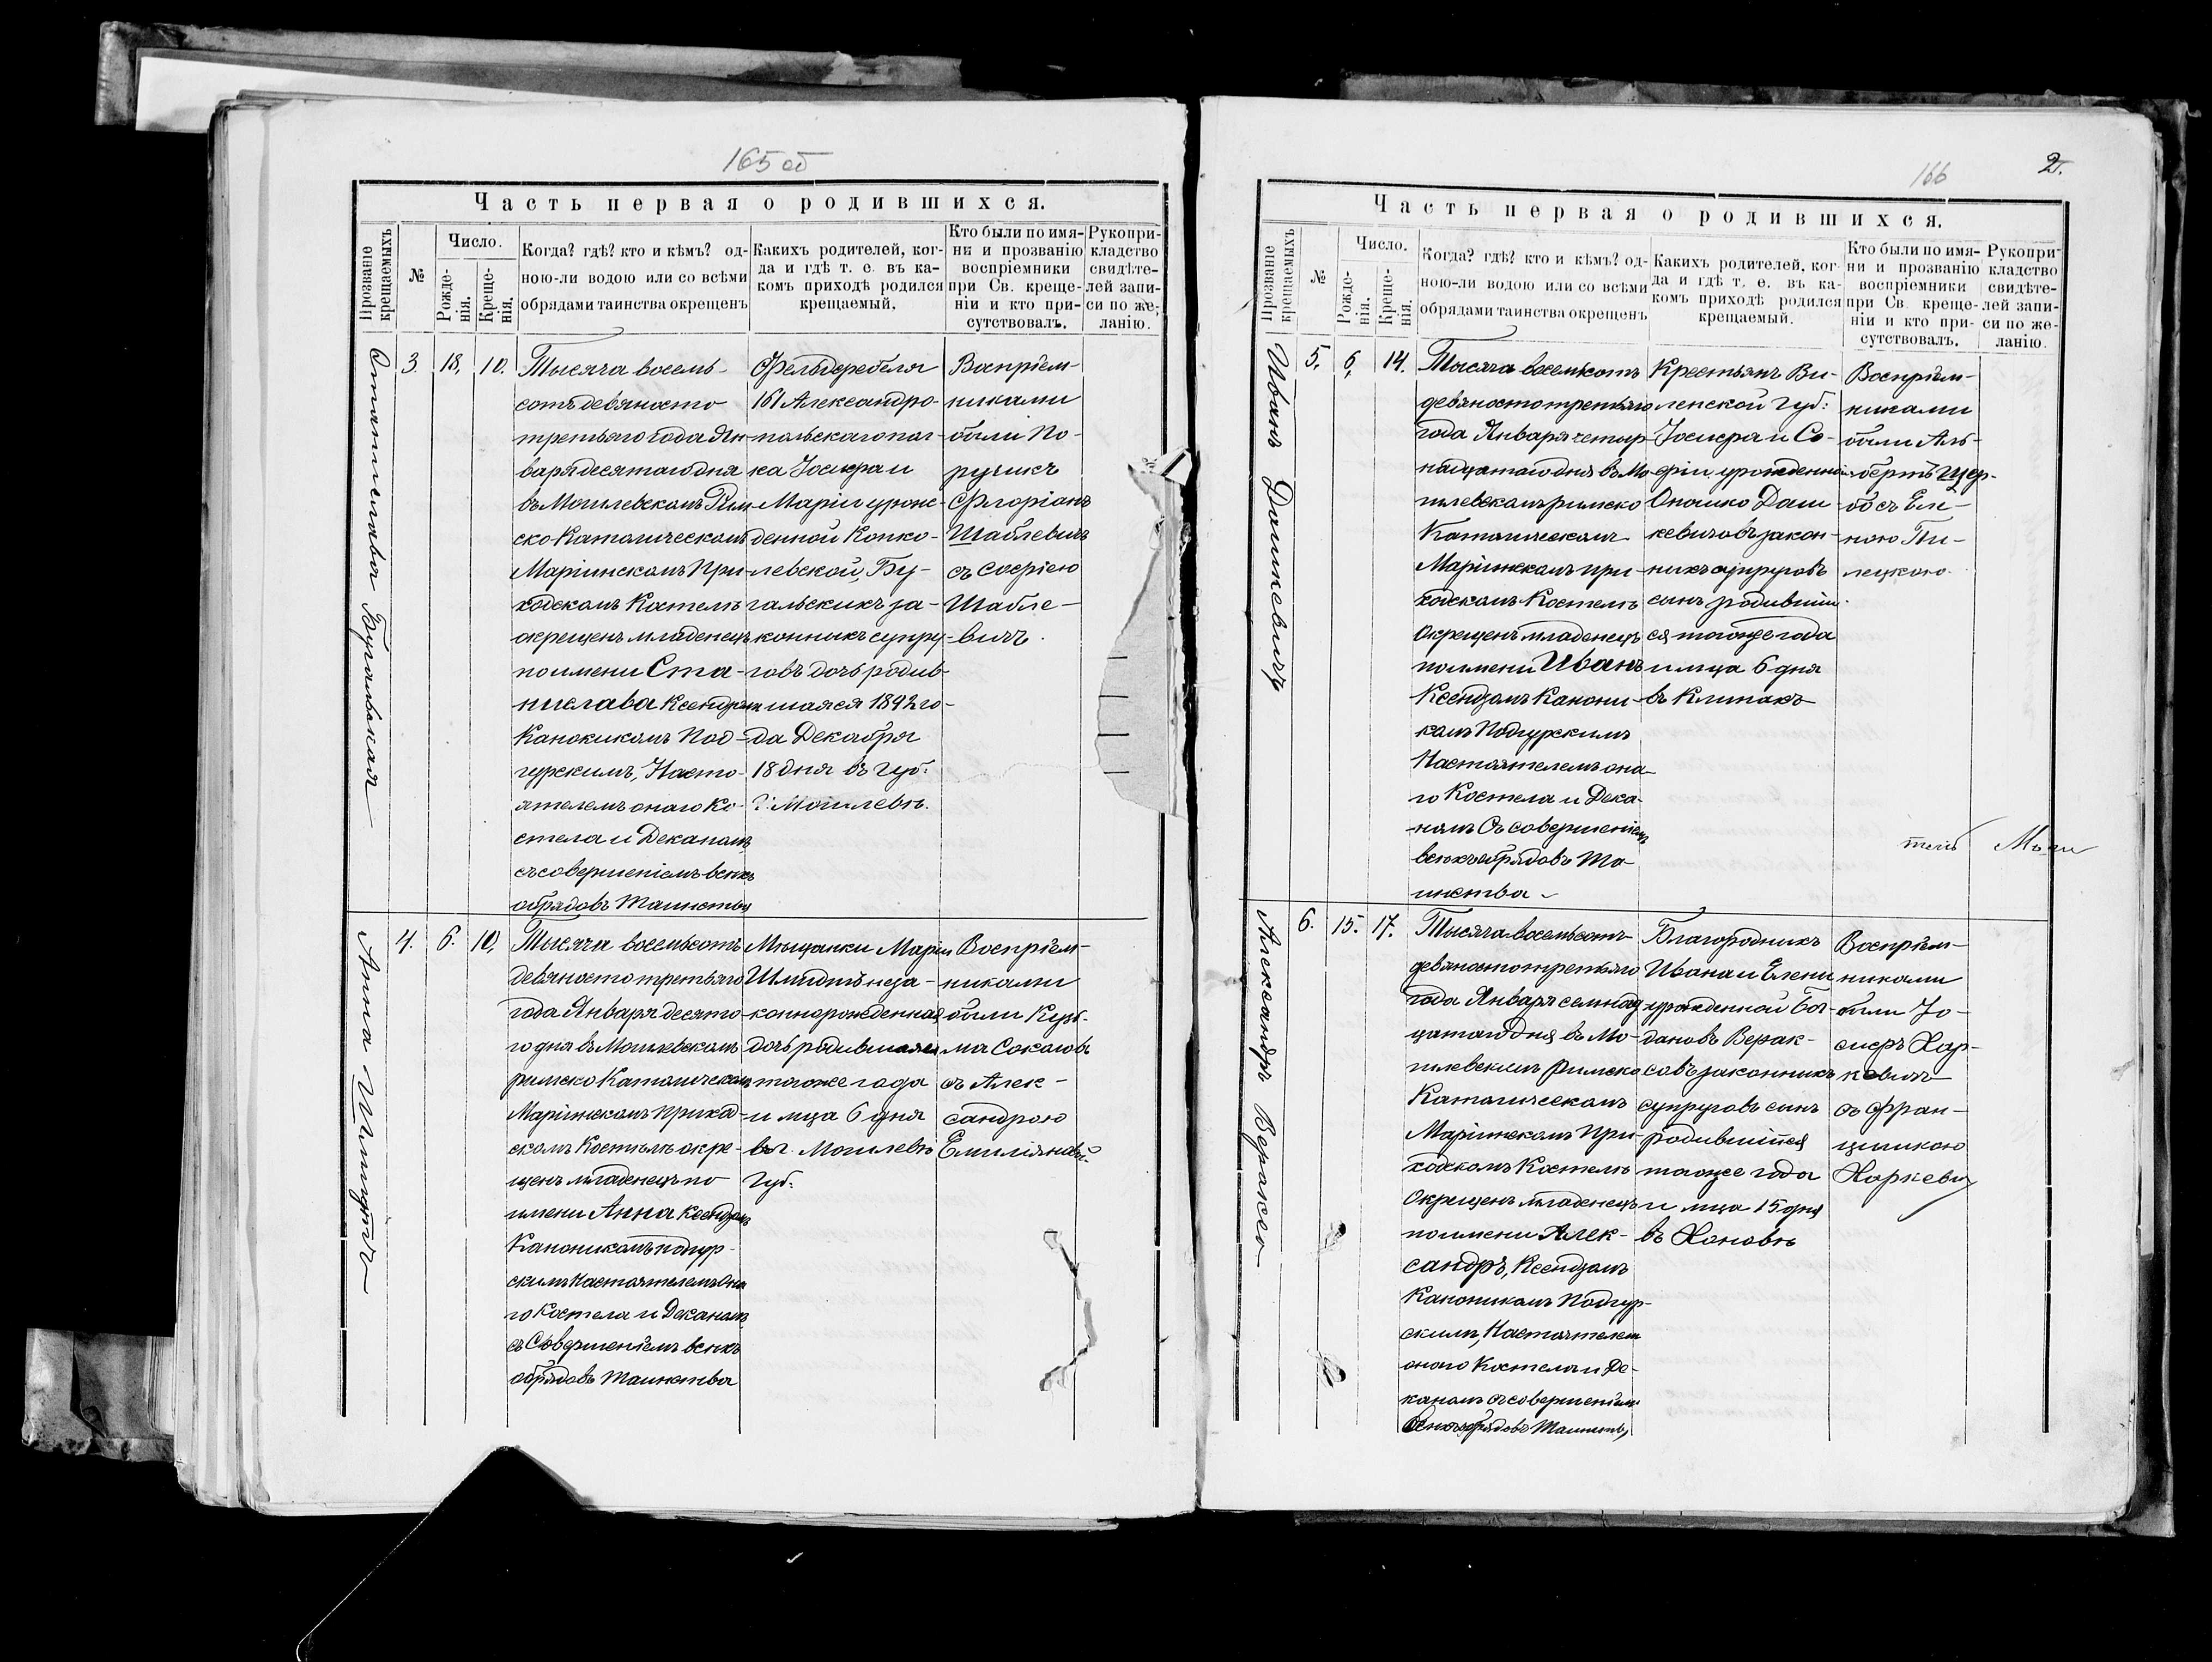 165 об
Часть первая о родившихся.
Прозваніе крещаемыхъ
№
Число.
Рожде-
нія.
Креще-
нія.
Когда? гдѣ? кто и кѣмъ? од-
ною-ли водою или со всѣми
обрядами таинства окрещенъ
Какихъ родителей, ког-
да и гдѣ т. е. въ ка-
комъ приходѣ родился
крещаемый.
Кто были по имя-
ни и прозванію
воспріемники
при Св. креще-
ніи и кто при-
сутствовалъ.
Рукопри-
кладство
свидѣте-
лей запи-
си по же-
ланію.
Станислава Бугальская
3
18,
10.
Тысяча восемь-
сотъ девяносто
третьяго года Ян-
варя десятаго дня
въ Могилевскомъ Рим-
ско Католическомъ
Маріинскомъ При-
ходскомъ Костелѣ
окрещенъ младенецъ
по имени Ста-
нислава Ксендзомъ
Каноникомъ Под-
гурскимъ, Насто-
ятелемъ онаго Ко-
стела и Деканомъ
съ совершеніемъ всѣхъ
обрядовъ Таинства
Фельдфебеля
161 Александро-
польскаго пол-
ка Іосифа и
Маріи урож-
денной Копко-
левской, Бу-
гальскихъ за-
конныхъ супру-
говъ дочь родив-
шаяся 1892 го-
да Декабря
18 дня въ Губ:
г: Могилевѣ.
Воспріем-
никами
были По-
ручикъ
Флоріанъ
Шаблевичъ
съ Софіею
Шабле-
вичъ.
Анна Шмидтъ
4.
6.
10,
Тысяча восемьсотъ
девяносто третьяго
года Января десято-
го дня въ Могилевскомъ
римско Католическомъ
Маріинскомъ приход-
скомъ Костелѣ окре-
щенъ младенецъ по
имени Анна Ксендзомъ
Каноникомъ подгур-
скимъ Настоятелемъ она-
го Костела и Деканомъ
съ Совершеніемъ всѣхъ
обрядовъ Таинства
Мѣщанки Маріи
Шмидтъ неза-
коннорожденная
дочь родившаяся
тогоже года
и мца 6 дня
въ г. Могилевѣ
Губ:
Воспріем-
никами
были Кузь-
ма Соколовъ
съ Алек-
сандрою
Емиліяновой.
166
2.
Часть первая о родившихся.
Прозваніе крещаемыхъ
№
Число.
Рожде-
нія.
Креще-
нія.
Когда? гдѣ? кто и кѣмъ? од-
ною-ли водою или со всѣми
обрядами таинства окрещенъ
Какихъ родителей, ког-
да и гдѣ т. е. въ ка-
комъ приходѣ родился
крещаемый.
Кто были по имя-
ни и прозванію
воспріемники
при Св. креще-
ніи и кто при-
сутствовалъ.
Рукопри-
кладство
свидѣте-
лей запи-
си по же-
ланію.
Иванъ Дашкевичъ
5,
6,
14.
Тысяча восемьсотъ
девяносто третьяго
года Января четыр-
надцатаго дня въ Мо-
гилевскомъ римско
Католическомъ
Маріинскомъ при-
ходскомъ Костелѣ
Окрещенъ младенецъ
по имени Иванъ
Ксендзомъ Канони-
комъ Подгурскимъ
Настоятелемъ она-
го Костела и Дека-
номъ Съ совершеніемъ
всѣхъ обрядовъ Та-
инства
Крестьянъ Ви-
ленской Губ:
Іосифа и Со-
фіи урожденной
Оношко Даш-
кевичовъ закон-
ныхъ супруговъ
сынъ родившій-
ся тогоже года
и мца 6 дня
въ Климахъ
Воспріем-
никами
были Аль-
бертъ Щер-
бо съ Еле-
ною Пи-
лецкою.
Александръ Вераксо
6.
15.
17.
Тысяча восемьсотъ
девяносто третьяго
года Января семнад-
цатаго дня въ Мо-
гилевскимъ римско
Католическомъ
Маріинскомъ При-
ходскомъ Костелѣ
Окрещенъ младенецъ
по имени Алек-
сандръ, Ксендзомъ
Каноникомъ Подгур-
скимъ, Настоятелемъ
онаго Костела и Де-
каномъ съ совершеніемъ
всѣхъ обрядовъ Таинства
Благородныхъ
Ивана и Елены
урожденной Бог-
дановъ Верак-
совъ законныхъ
супруговъ сынъ
родившійся
тогоже года
и мца 15 дня
въ Хоновѣ
Воспріем-
никами
были Іо-
сифъ Хар-
кевичъ
съ Фран-
цишкою
Харкевичъ